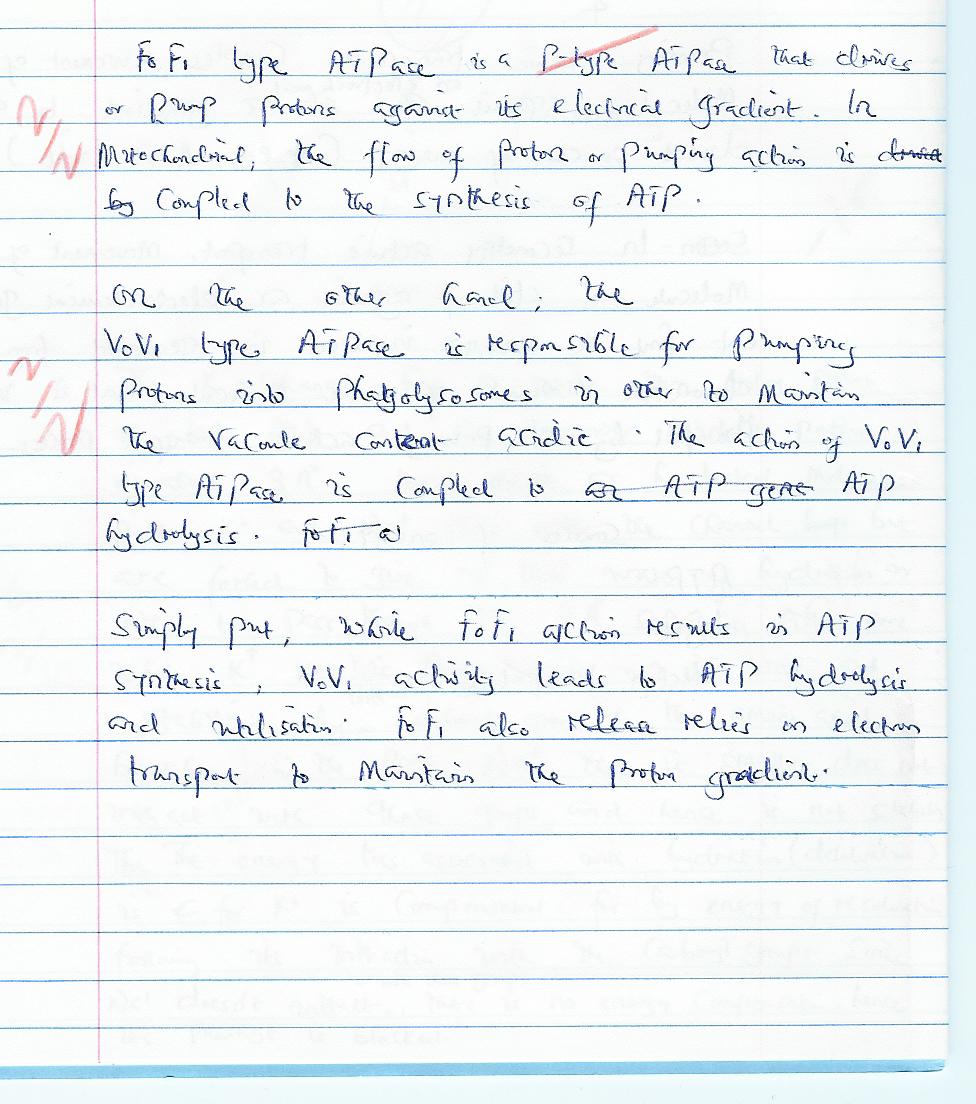 FoF1 type ATPase is a P-type ATPase that drives
or pump protons against its electrical gradient. In
2/2
Mitochondrial, the flow of proton or pumping action is drived
by coupled to the synthesis of ATP.
On the other hand, the
VoV1 type ATPase is responsible for pumping
2/2
protons into phatgolysosomes in other to maintain
the vacoule content acidic. The action of VoV1
type ATPase is coupled to or ATP gene ATP
hydrolysis. FoF1 a
Simply put, while FoF1 action results in ATP
synthesis, VoV1 activity leads to ATP hydrolysis
and utilisation. FoF1 also release relies on electron
transport to maintain the proton gradient.